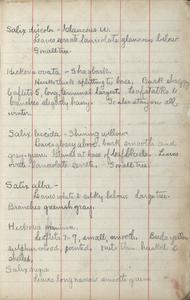 Salix discolor - Glaucous w.
Leaves ovate lanceolate glaucous below
Small tree.
Hickoria ovata - Shagbark.
Husk thick splitting to base. Bark shaggy
Leaflets 5, long, terminal largest. Leafstalks &
branches slightly hairy. To also stay on all
winter.
Salix lucida - Shining willow
Leaves glossy above, bark smooth and
gray-green. Glands at base of leafblade. Leaves
ovate lanceolate serrate. Small tree.
Salix alba -
Leaves white & silky below. Large tree.
Branches greenish gray.
Hickoria minima.
Leaflets 7-9, small, smooth. Buds yellow
sulphur colored, pointed. nuts thin husked &
shelled.
Salix nigra
Leaves long narrow smooth green